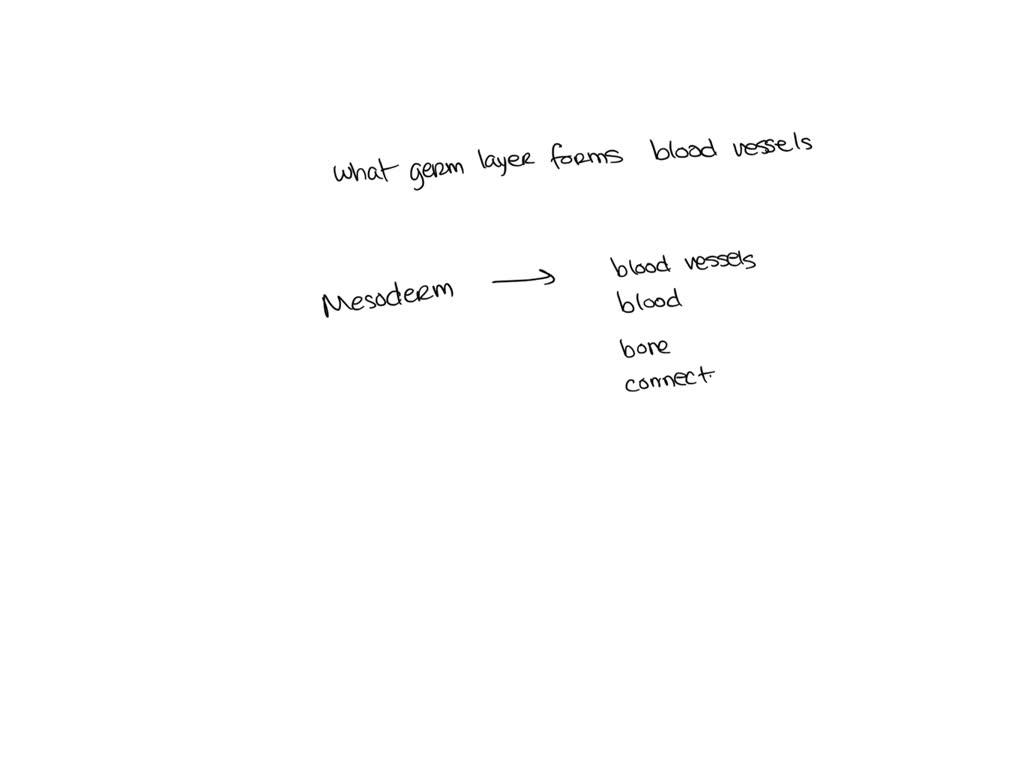 what germ layer forms blood vessels
Mesoderm → blood vessels
blood
bone
connect.